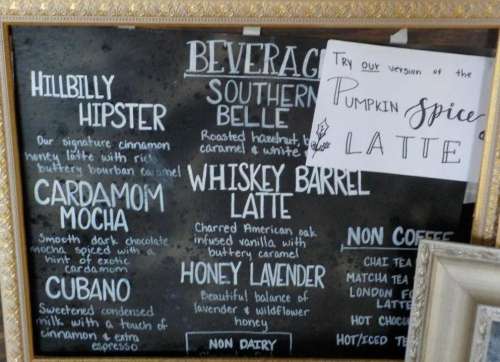 BEVERAG
HILLBILLY
HIPSTER
Our signature cinnamon
honey latte with rich
buttery bourbon caramel
CARDAMOM
MOCHA
Smooth dark chocolate
mocha spiced with a
hint of exotic
cardamom
CUBANO
Sweetened condensed
milk with a touch of
cinnamon & extra
espresso
SOUTHERN
BELLE
Roasted hazelnut,
caramel & white
WHISKEY BARREL
LATTE
Charred American oak
infused vanilla with
buttery caramel
HONEY LAVENDER
Beautiful balance of
lavender & wildflower
honey
NON DAIRY
Try our version of the
Pumpkin Spice
LATTE
NON COFFEE
CHAI TEA
MATCHA TEA
LONDON
LATTE
HOT
HOT/ICED